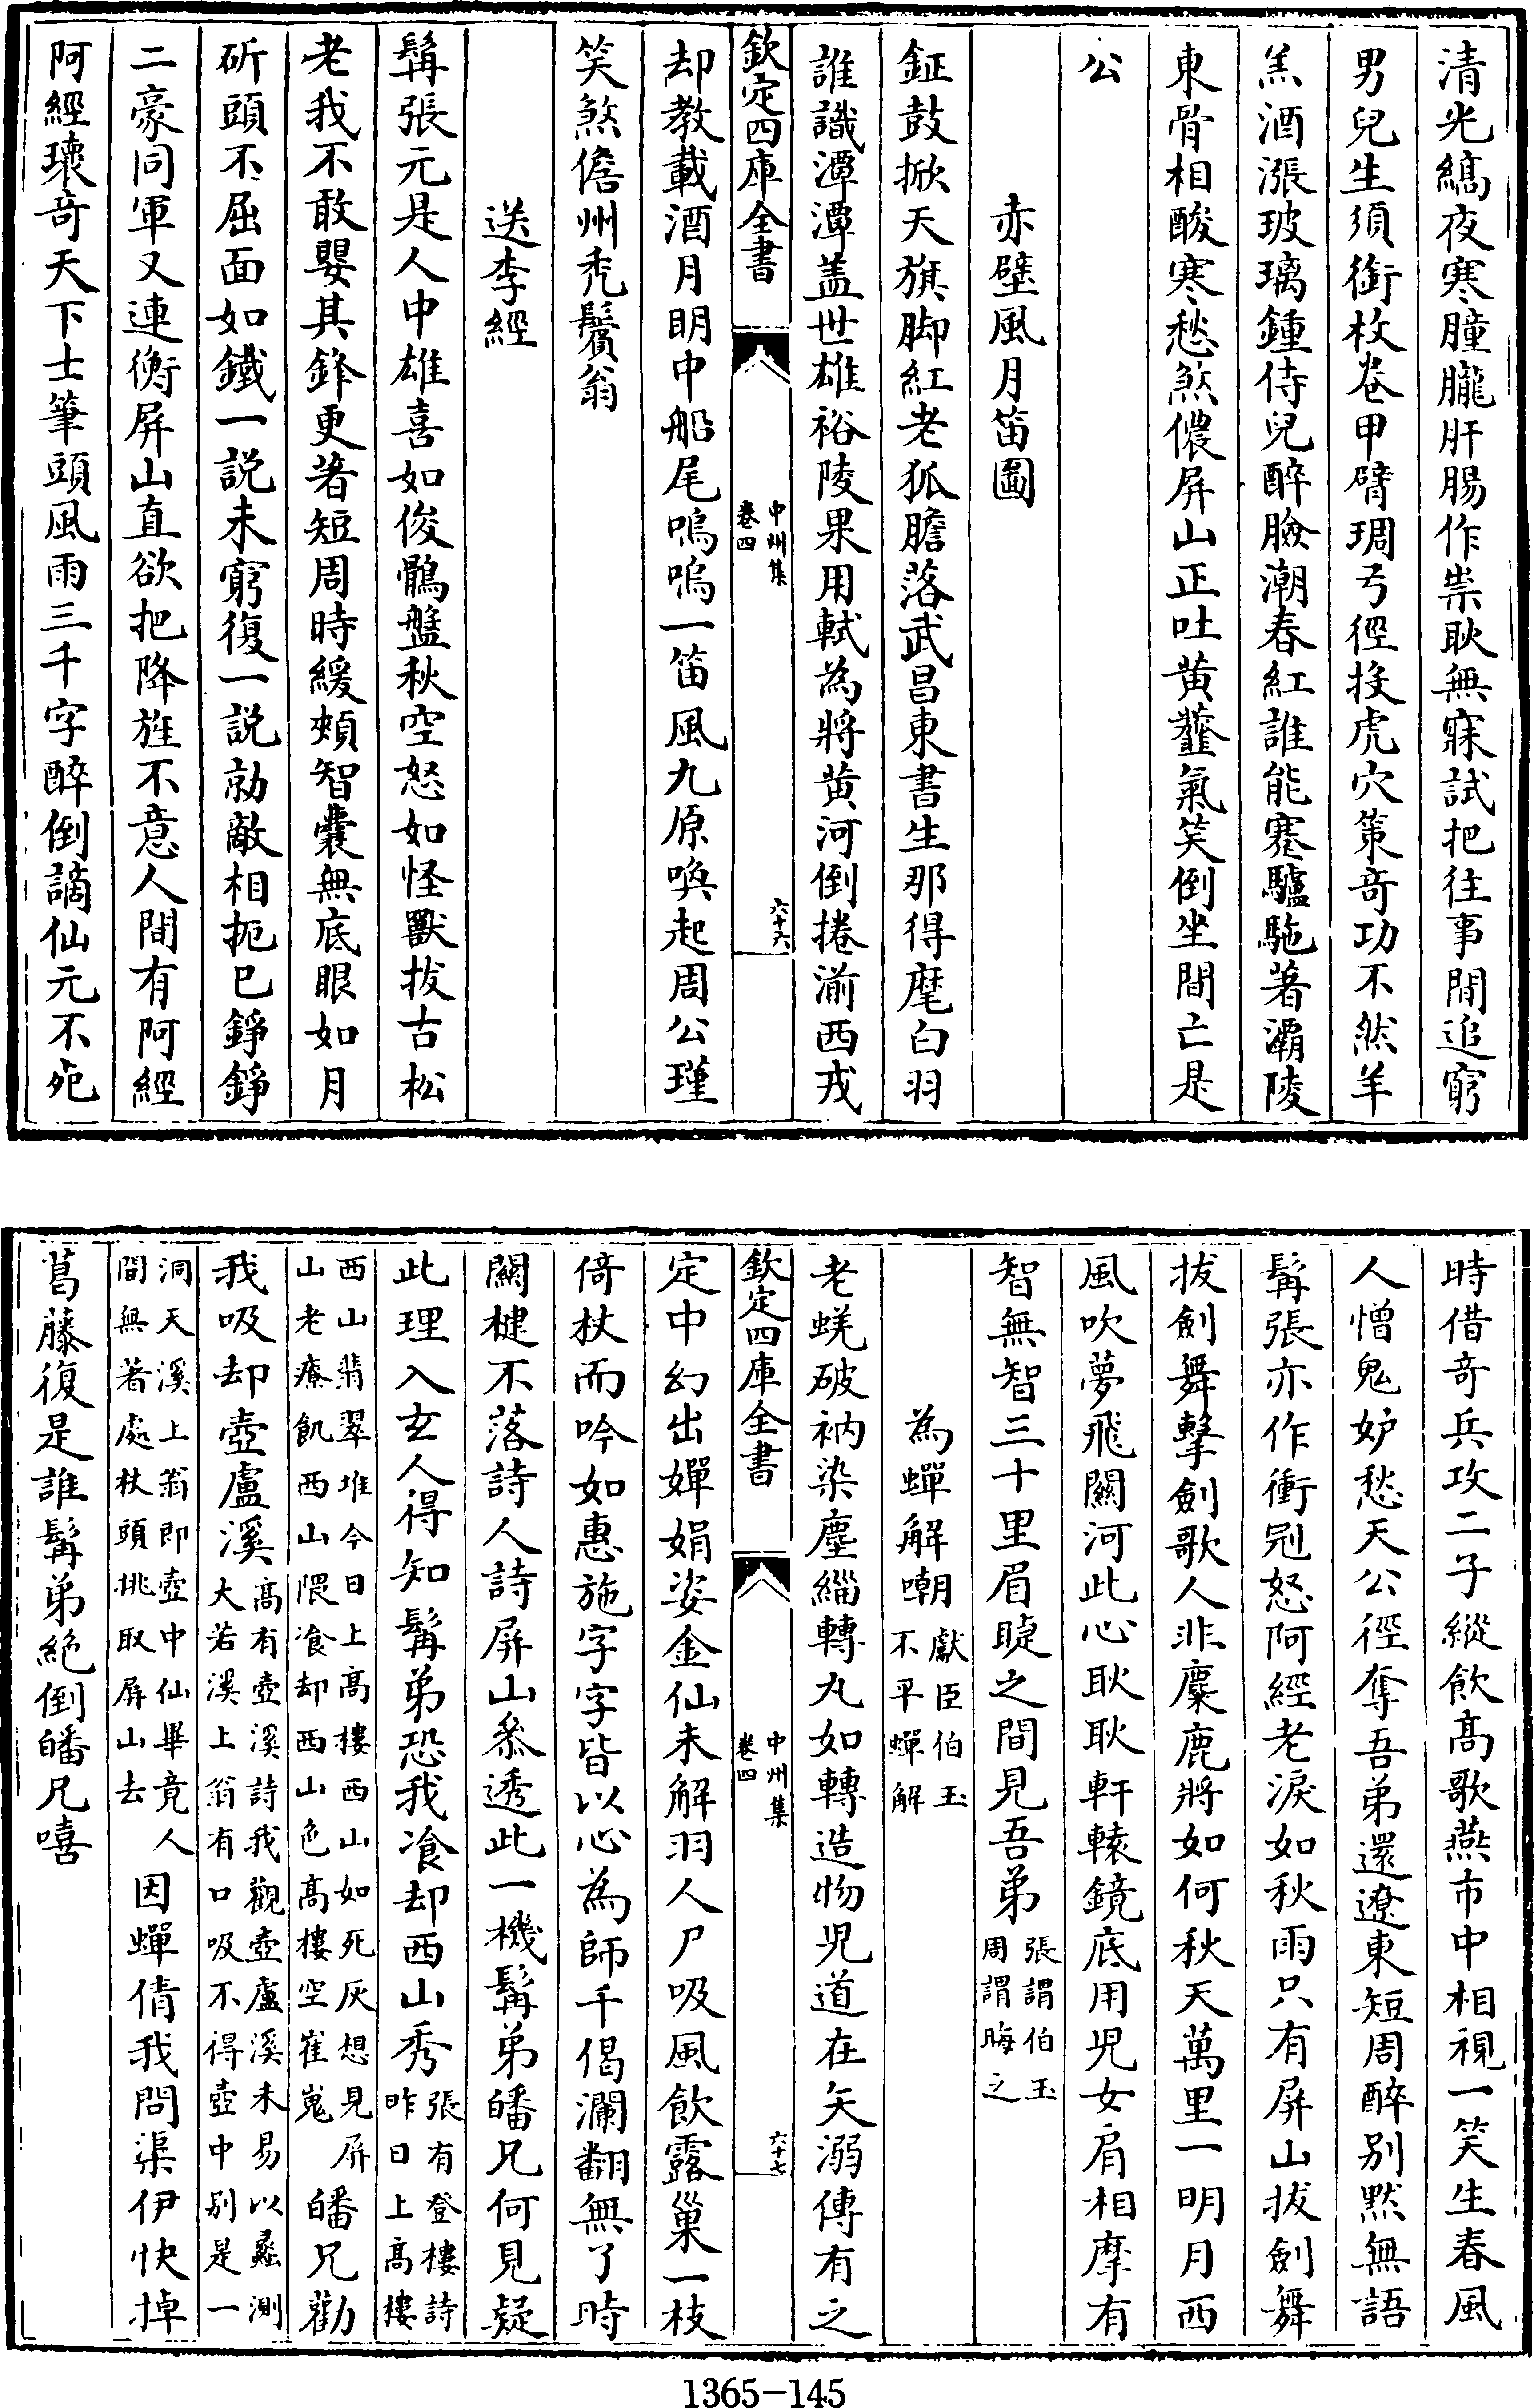 清光縞夜寒朣朧肝腸作祟耿無寐試把往事閒追窮
男兒生須銜枚卷甲臂琱弓徑投虎穴策奇功不然羊
羔酒漲玻璃鍾侍兒醉臉潮春紅誰能蹇驢馳著灞陵
東骨相酸寒愁煞儂屏山正吐黄虀氣笑倒坐間亡是
公
赤壁風月笛圖
鉦鼓掀天旗脚紅老狐膽落武昌東書生那得麾白羽
誰識潭潭盖世雄裕陵果用軾為將黄河倒捲湔西戎
欽定四庫全書
中州集
卷四
六十六
却教載酒月明中船尾嗚嗚一笛風九原喚起周公瑾
笑煞儋州禿鬢翁
送李經
髯張元是人中雄喜如俊鶻盤秋空怒如怪獸拔古松
老我不敢嬰其鋒更著短周時緩頰智囊無底眼如月
斫頭不屈面如鐵一説未窮復一説勍敵相扼已錚錚
二豪同軍又連衡屏山直欲把降旌不意人間有阿經
阿經瓌奇天下士筆頭風雨三千字醉倒謫仙元不死
時借奇兵攻二子縱飲高歌燕市中相視一笑生春風
人憎鬼妒愁天公徑奪吾弟還遼東短周醉别黙無語
髯張亦作衝冠怒阿經老淚如秋雨只有屏山拔劍舞
拔劍舞擊劍歌人非麋鹿將如何秋天萬里一明月西
風吹夢飛關河此心耿耿軒轅鏡底用兒女肩相摩有
智無智三十里眉睫之間見吾弟
張謂伯玉
周謂晦之
為蟬解嘲
獻臣伯玉
不平蟬解
老蜣破衲染塵緇轉丸如轉造物兒道在矢溺傳有之
欽定四庫全書
中州集
卷四
六十七
定中幻出嬋娟姿金仙未解羽人尸吸風飲露巢一枝
倚杖而吟如惠施字字皆以心為師千偈瀾翻無了時
關楗不落詩人詩屏山參透此一機髯弟皤兄何見疑
此理入玄人得知髯弟恐我飡却西山秀
張有登樓詩
昨日上高樓
西山翡翠堆今日上高樓西山如死灰想見屏
山老療飢西山隈飡却西山色高樓空崔嵬
皤兄勸
我吸却壺盧溪
高有壺溪詩我觀壺盧溪未易以蠡測
大若溪上翁有口吸不得壺中别是一
洞天溪上翁即壺中仙畢竟人
間無著處杖頭挑取屏山去
因蟬倩我問渠伊快掉
葛藤復是誰髯弟絶倒皤兄嘻
1365-145